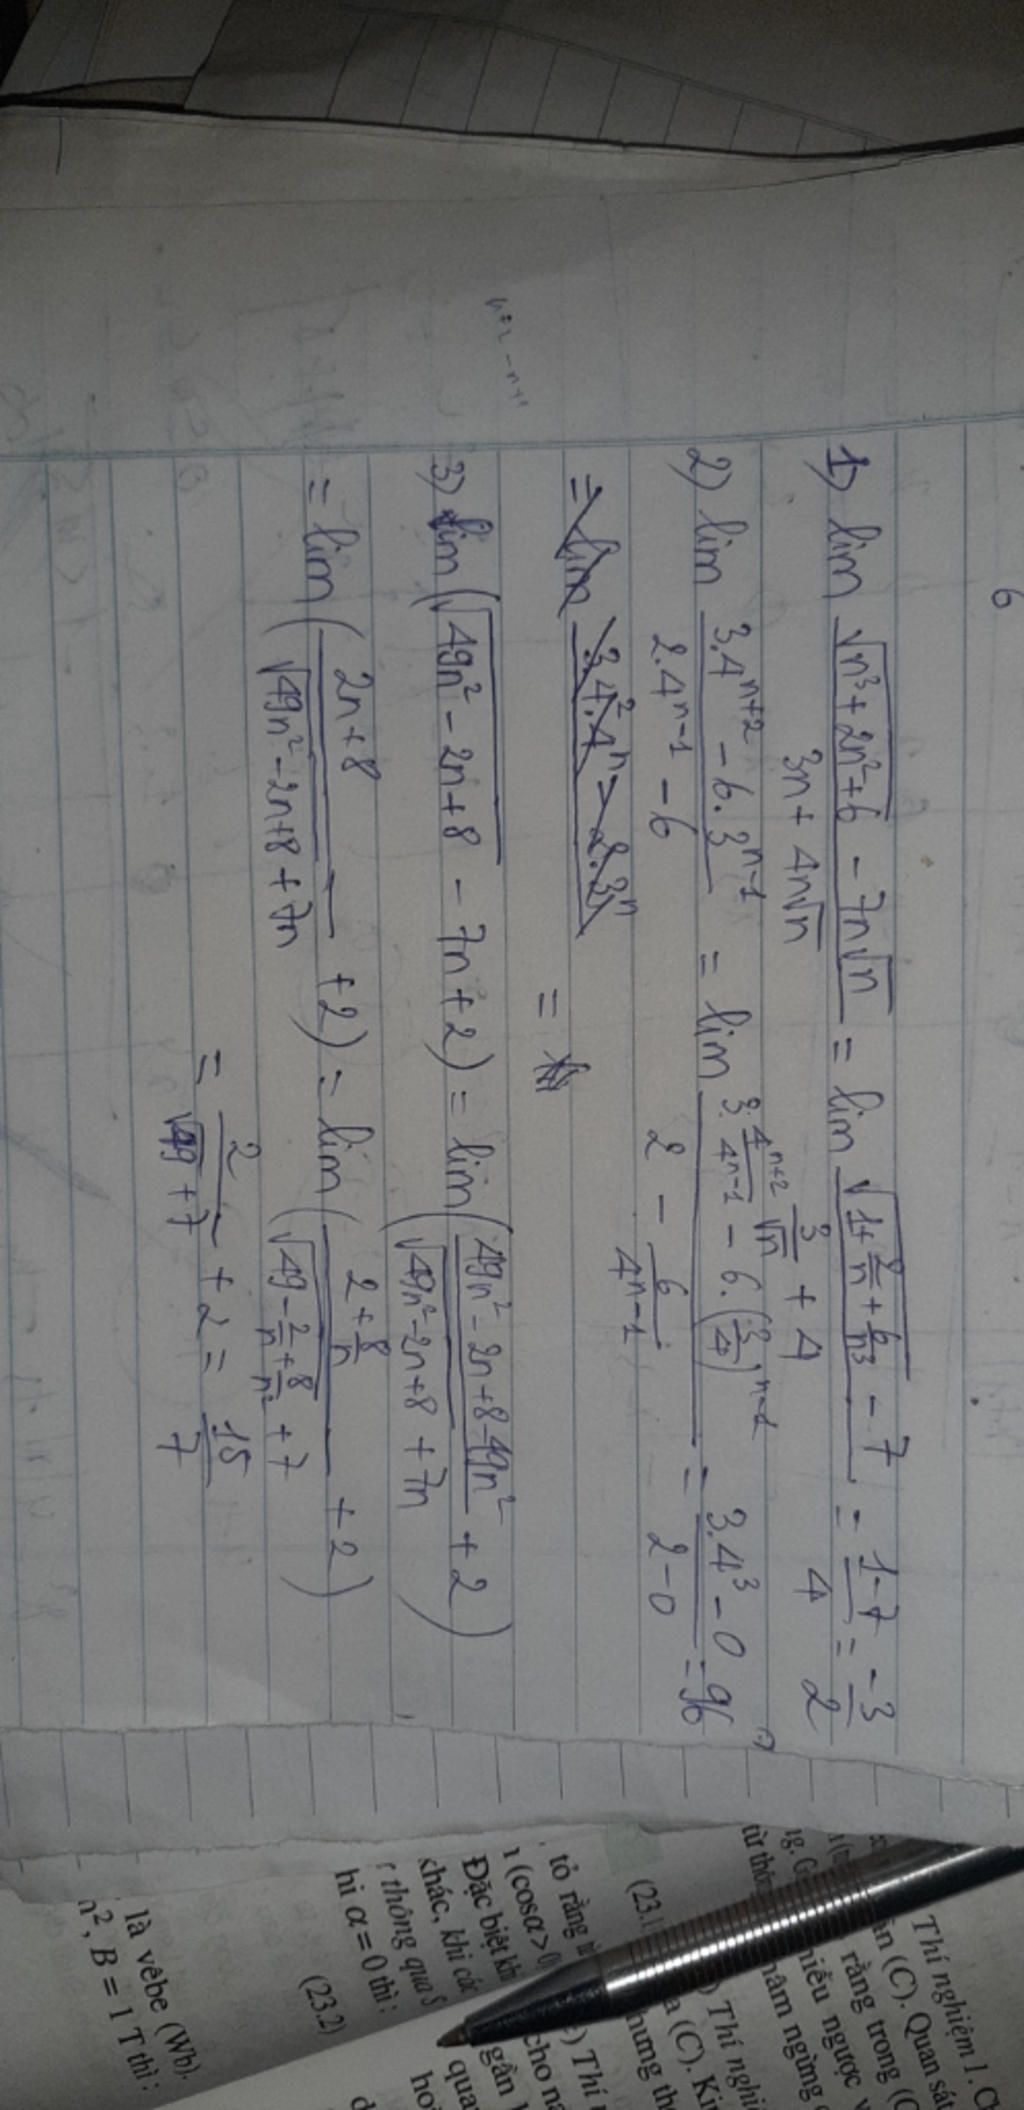 6
1) lim (√(n³+2n²+6) - 7n√n)/(3n + 4n√n) = lim (√(1+2/n+6/n³) - 7)/(3/√n + 4) = (1-7)/4 = -3/2
2) lim (3.4^(n+2) - 6.3^(n-1))/(2.4^(n-1) - 6) = lim (3.4^(n+2)/4^(n-1) - 6.(3/4)^(n-1))/(2 - 6/4^(n-1)) = (3.4³ - 0)/(2-0) = 96
= lim (3.4².4ⁿ - 2.3ⁿ)
=
n+2 - n+1
3) lim(√(49n² - 2n+8) - 7n+2) = lim((49n²-2n+8-49n²)/(√(49n²-2n+8) + 7n) + 2)
= lim((2n+8)/(√(49n²-2n+8) + 7n) + 2) = lim((2+8/n)/(√(49-2/n+8/n²) + 7) + 2)
= 2/(√49+7) + 2 = 15/7
Thí nghiệm 1. C
(C). Quan sát
rằng trong (C
hiều ngược v
hâm ngừng
Thí nghi
a (C). Ki
hưng th
tỏ rằng
(cosα > 0
Đặc biệt kh
khác, khi các
thông qua S
hi α = 0 thì :
(23.2)
là vêbe (Wb).
n², B = 1 T thì :
Thí
cho n
gắn
qua